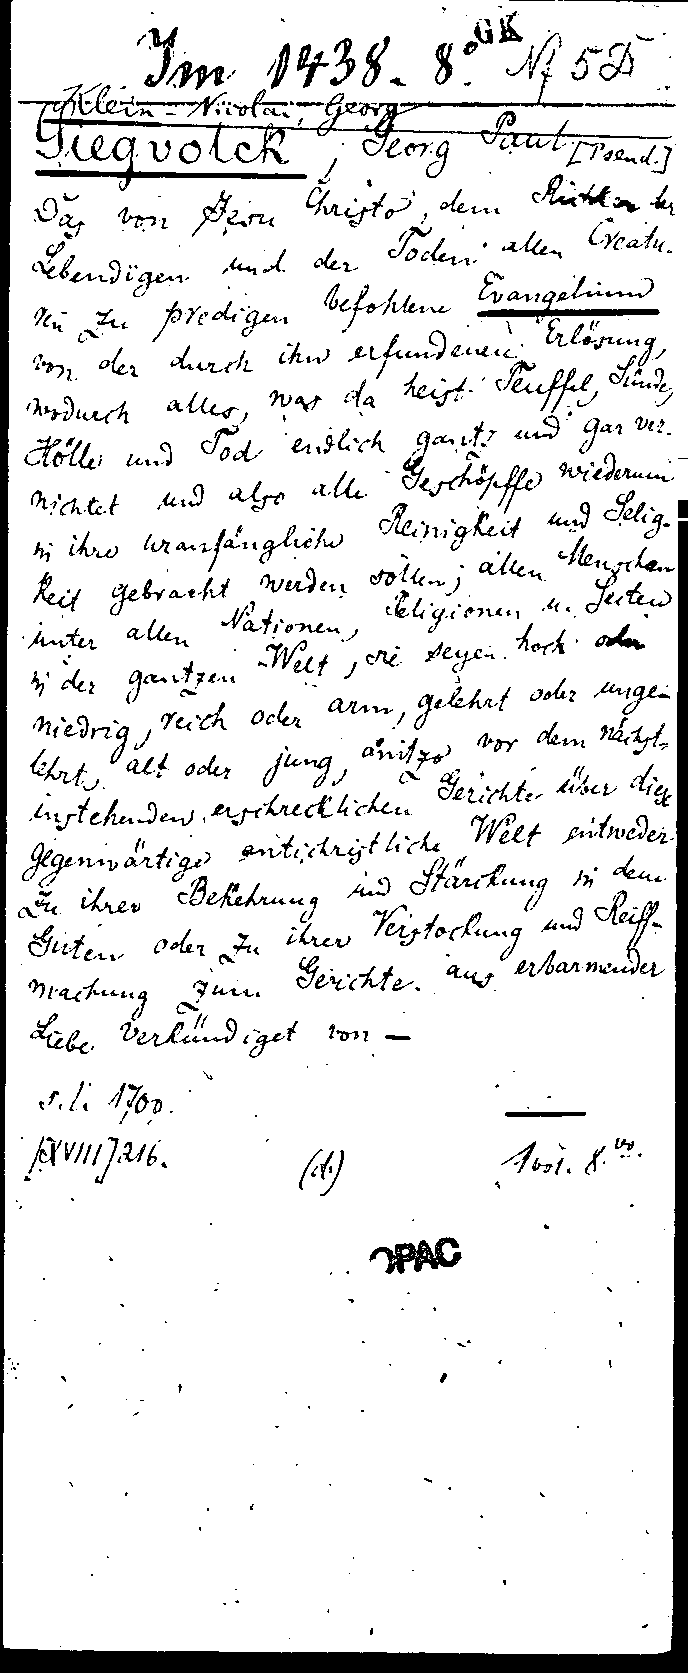 Im 1438. 8.° GK Nf 5 D
Klein-Nicolai, Georg
Siegvolck, Georg Paul [Pseud.]
Das von Jesu Christo, dem Richter der
Lebendigen und der Toden allen Creatu-
ren zu predigen befohlene Evangelium
von der durch ihn erfundenen Erlösung,
wodurch alles, was da heist Teuffel, Sünde,
Hölle und Tod endlich gantz und gar ver-
nichtet und also alle Geschöpffe wiederum
in ihre uranfängliche Reinigkeit und Selig-
keit gebracht werden sollen; allen Menschen
unter allen Nationen, Religionen u. Secten
in der gantzen Welt, sie seyen hoch oder
niedrig, reich oder arm, gelehrt oder unge-
lehrt, alt oder jung, anitzo vor dem nächst-
instehenden erschrecklichen Gerichte über diese
gegenwärtige antichristliche Welt entweder
zu ihrer Bekehrung und Stärckung in dem
Guten oder zu ihrer Verstockung und Reiff-
machung zum Gerichte aus erbarmender
Liebe verkündiget von —
s. l. 1700.
[XVIII] 216. (d.) 1 vol. 8.vo.
OPAC